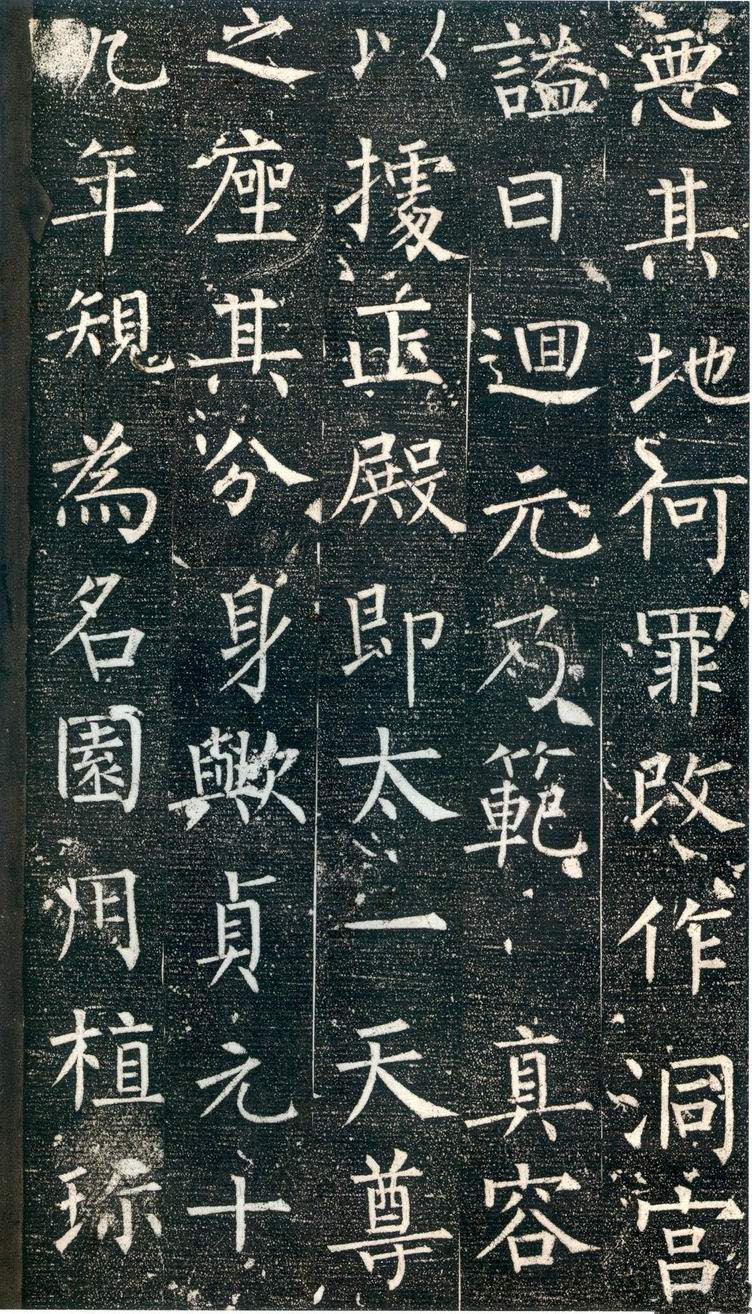 悪其地何罪改作洞宫
謚曰迴元乃範 真容
以據正殿即太一天尊
之座其分身歟貞元十
九年規為名園用植珎